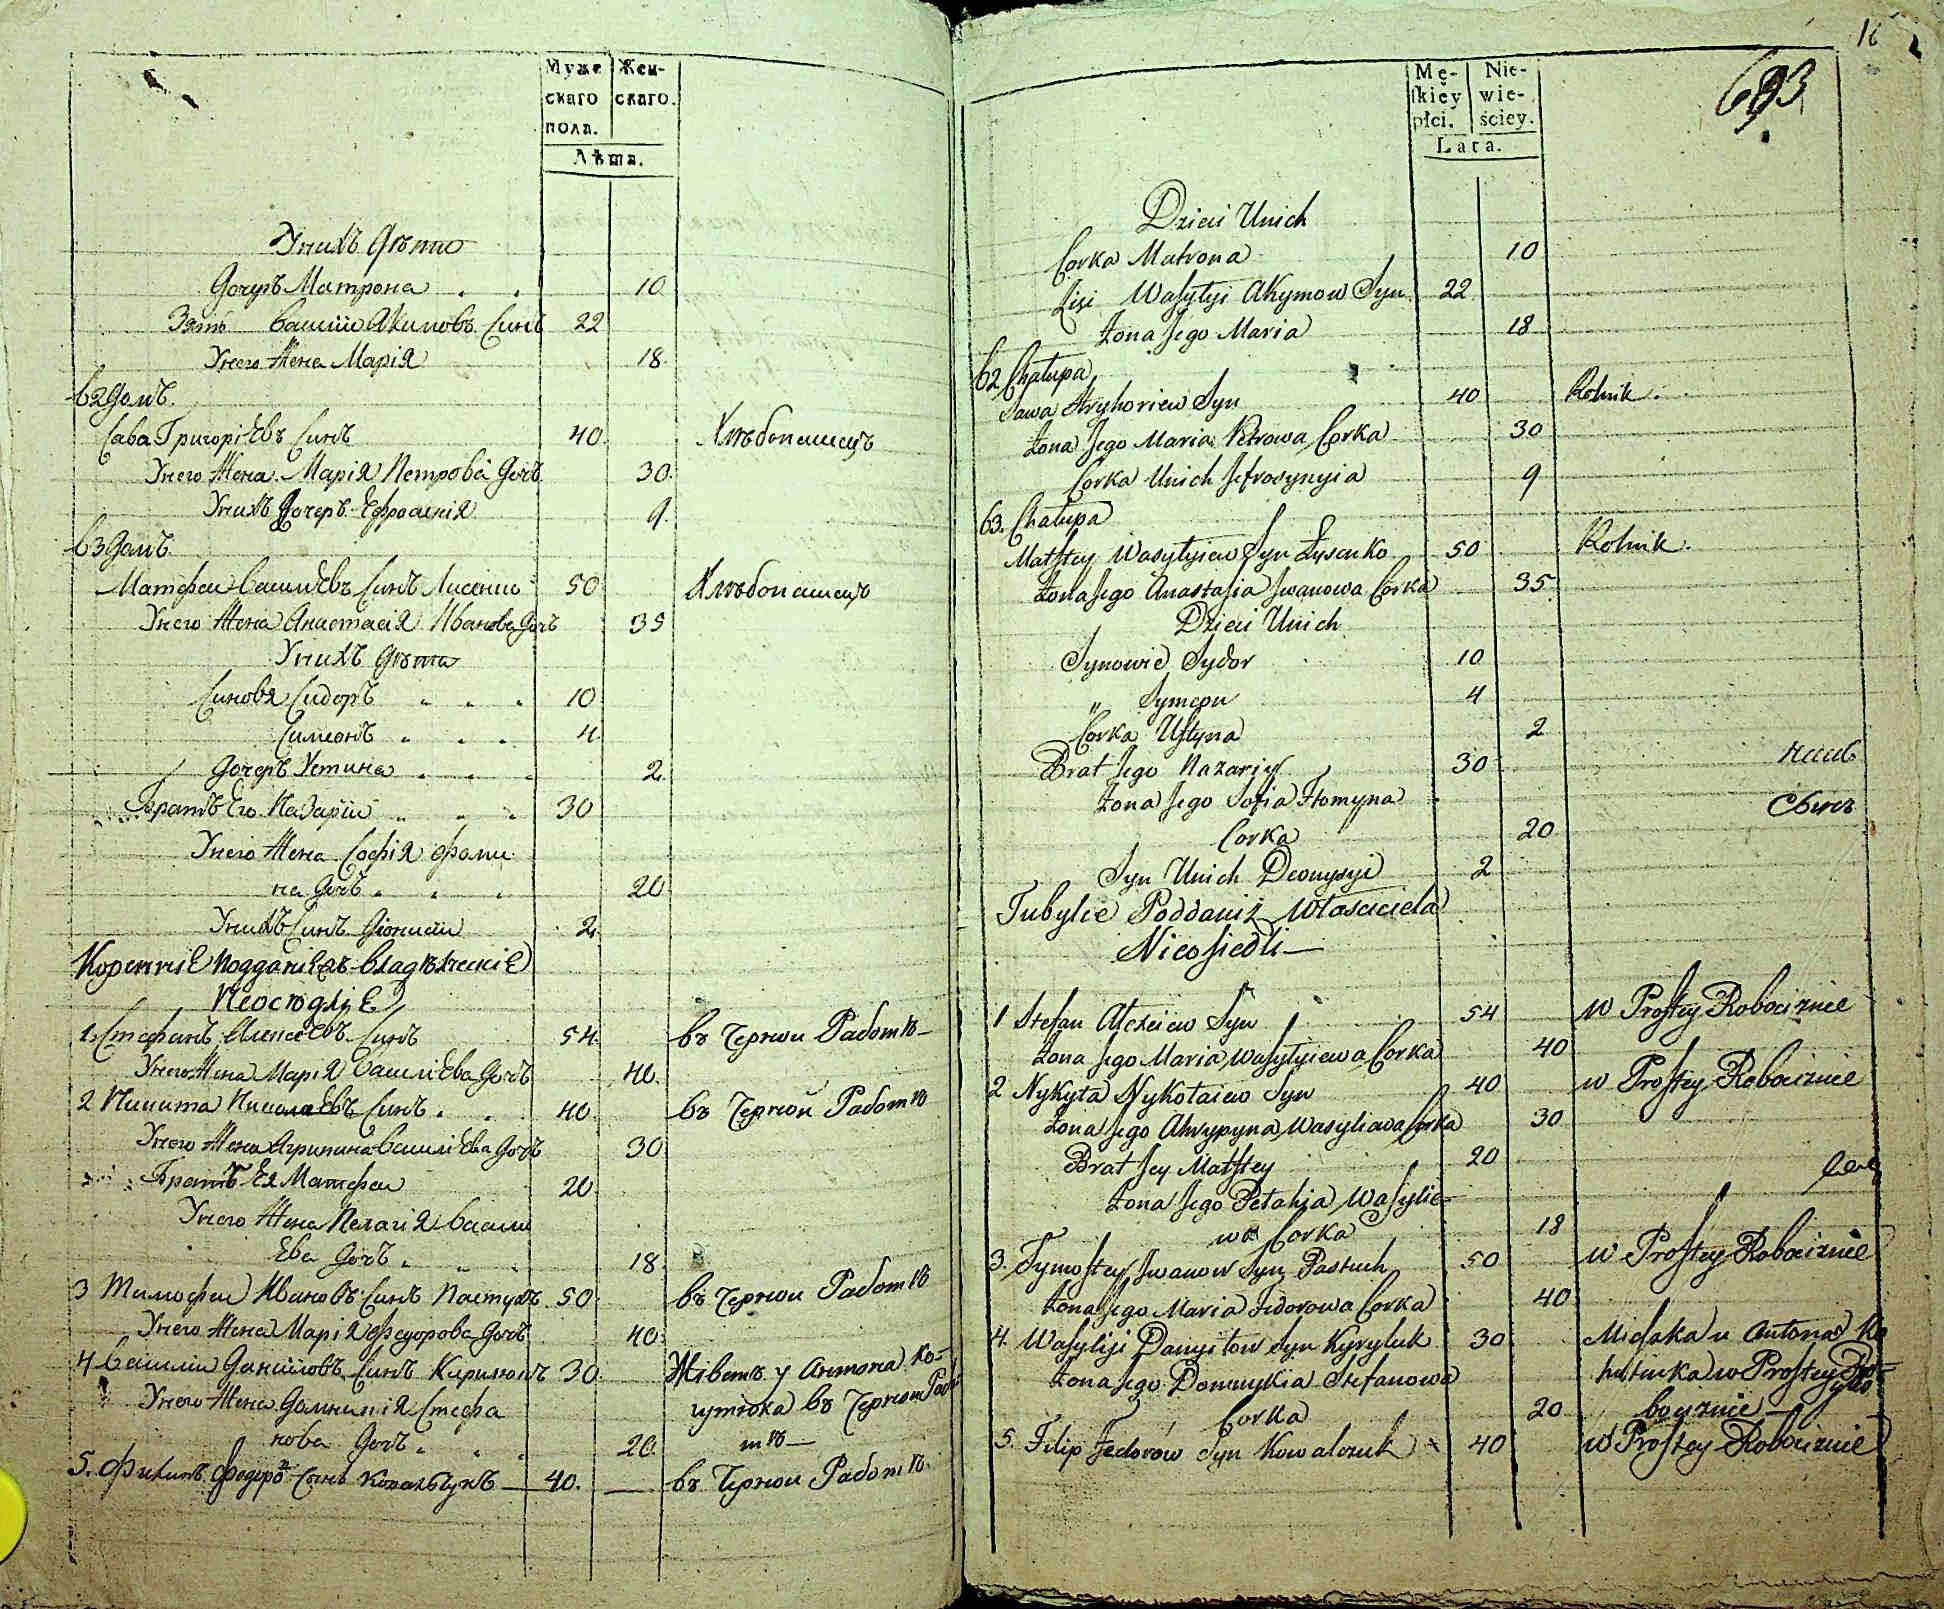 Муже
скаго
пола.
Жен-
скаго.
Лѣта.
Унихъ Дѣти
Дочерь Матрона 10
Зять Василій Якимовъ Синъ 22
Унего Жена Марія 18
62 Домъ.
Сава Григоріевъ Синъ 40 Хлѣбопашецъ
Унего Жена Марія Петрова Дочь 30
Унихъ Дочерь Ефросинія 9
63 Домъ.
Матфей Василіевъ Синъ Лисенко 50 Хлѣбопашецъ
Унего Жена Анастасія Иванова Дочь 35
Унихъ Дѣти
Синовя Сидоръ 10
Симеонъ 4
Дочерь Устина 2
Братъ Его Назарій 30
Унего Жена Софія Фоми
на Дочь 20
Унихъ Синъ Діонисій 2
Коренніе Подданіе Владѣлческіе
Неосѣдліе
1. Стефанъ Алексѣевъ Синъ 54 въ Черной Работѣ
Унего Жена Марія Василіева Дочь 40
2 Никита Николаевъ Синъ 40 въ Черной Работѣ
Унего Жена Агрипина Василіева Дочь 30
Братъ Ея Матфей 20
Унего Жена Пелагія Васили
Ева Дочь 18
3 Тимофей Ивановъ Синъ Пастухъ 50 въ Черной Работѣ
Унего Жена Марія Федорова Дочь 40
4 Василій Даниловъ Синъ Кирилюкъ 30 Жіветъ у Антона Ко-
Унего Жена Домникія Стефа
нова Дочь 20
въ Черной Рабо
тѣ
5. Филипъ Федоровъ Синъ Ковальчукъ 40. въ Черной Работѣ
16
693
Mę-
skiey
płci.
Nie-
wie-
ściey.
Lata.
Dzieci Unich
Corka Matrona 10
Zięć Wasylyi Akymow Syn 22
Żona Jego Maria 18
62 Chałupa
Sawa Hryhoriew Syn 40 Rolnik.
Żona Jego Maria Petrowa Corka 30
Corka Unich Jefrosynyia 9
63. Chałupa
Matftey Wasylyiew Syn Łysenko 50 Rolnik.
Żona Jego Anastasia Jwanowa Corka 35
Dzieci Unich
Synowie Sydor 10
" Symeon 4
Corka Ustyna 2
Brat Jego Nazariy 30
Żona Jego Sofia Homyna
Corka 20
Syn Unich Deonysyi 2
Tubylce Poddani Własciciela
Nieosiedli
1 Stefan Alexiew Syn 54 w Prostey Robociznie
Żona Jego Maria Wasylyiewa Corka 40
2 Nykyta Nykołaiew Syn 40 w Prostey Robociznie
Żona Jego Ahrypyna Wasyliewa Corka 30
Brat Jey Matftey 20
Żona Jego Pełahia Wasylie-
wa Corka 18
3. Tymoftey Jwanow Syn Pastuch 50 w Prostey Robociznie
Żona Jego Maria Fedorowa Corka 40
4. Wasylyi Danyiłow Syn Kyryluk 30 Mieszka u Antona Ko
Żona Jego Domnykia Stefanowa
Corka 20
w Prostey Ro-
bociznie
5. Filip Fedorów Syn Kowalczuk 40 w Prostey Robociznie